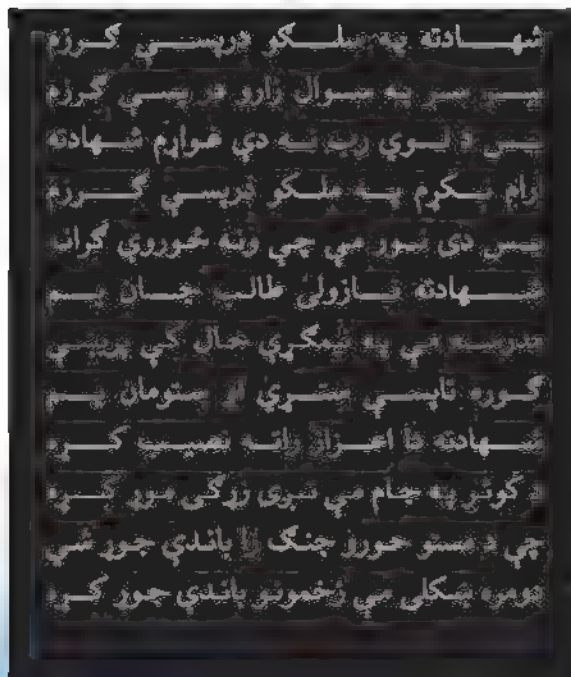 شهادته په سلګو درپسې ګرزم
سر په سوال زارو درپسې ګرزم
چې د لوی رب نه دې غواړم شهادته
پسې ګرزم
بس دی نور مې چې ونه ځوروې ګرانه
شهادته نازولی طالب جان یم
مدرسه مې په نیمګړي حال کې پرېښې
ګوره تاپسې ستړی ستومان یم
شهادته دا اعزاز رانه نصیب کړه
د کوثر په جام مې تږی زړګی موړ کړه
چې د مستو حورو جنګ را باندې جوړ شي
دومره ښکلی مې زخمونو باندې جوړ کړه